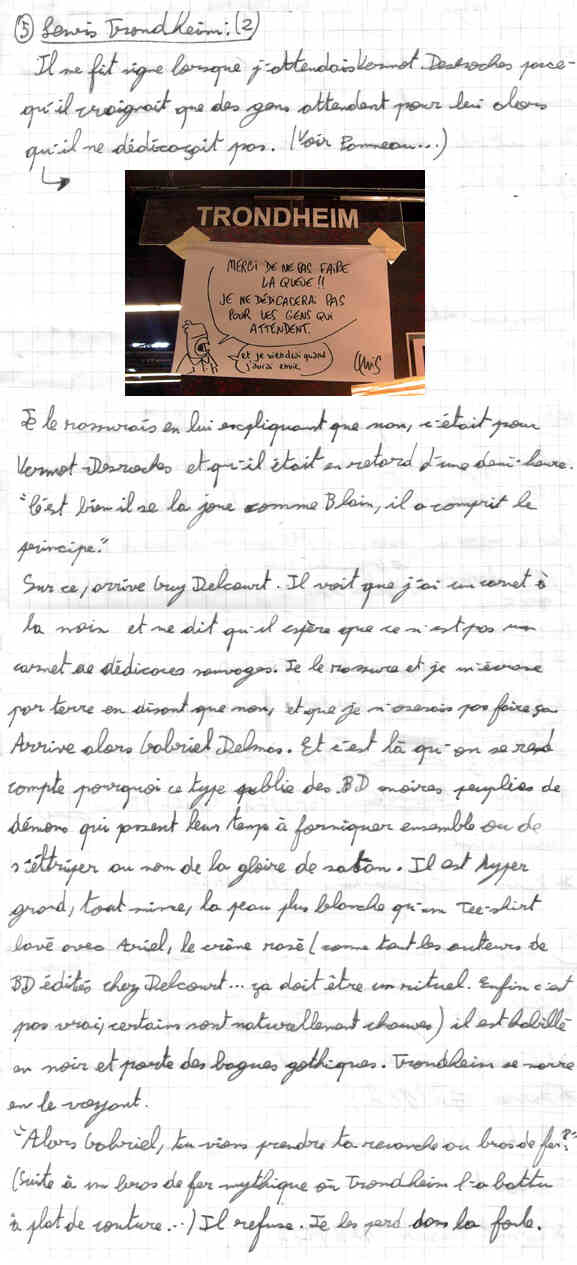 ⑤ Lewis Trondheim : (2)
Il me fit signe lorsque j'attendais Vermot-Desroches parce-
qu'il craignait que des gens attendent pour lui alors
qu'il ne dédicaçait pas. (Voir Panneau...)
TRONDHEIM
MERCI DE NE PAS FAIRE
LA QUEUE !!
JE NE DÉDICACERAI PAS
POUR LES GENS QUI
ATTENDENT.
et je viendrai quand
j'aurai envie.
Lewis
Je le rassurais en lui expliquant que non, c'était pour
Vermot-Desroches et qu'il était en retard d'une demi-heure.
"C'est bien il se la joue comme Blain, il a comprit le
principe."
Sur ce, arrive Guy Delcourt. Il voit que j'ai un carnet à
la main et me dit qu'il espère que ce n'est pas un
carnet de dédicaces sauvages. Je le rassure et je m'écrase
par terre en disant que non, et que je n'oserais pas faire ça
Arrive alors Gabriel Delmas. Et c'est là qu'on se rend
compte pourquoi ce type publie des BD noires peuplées de
démons qui passent leur temps à forniquer ensemble ou de
s'éttriper au nom de la gloire de satan. Il est hyper
grand, tout mince, la peau plus blanche qu'un Tee-shirt
lavé avec Ariel, le crâne rasé (comme tout les auteurs de
BD édités chez Delcourt... ça doit être un rituel. Enfin c'est
pas vrai, certains sont naturellement chauves) il est habillé
en noir et porte des bagues gothiques. Trondheim se marre
en le voyant.
"Alors Gabriel, tu viens prendre ta revanche au bras de fer?"
(Suite à un bras de fer mythique où Trondheim l'a battu
à plat de couture...) Il refuse. Je les perd dans la foule.